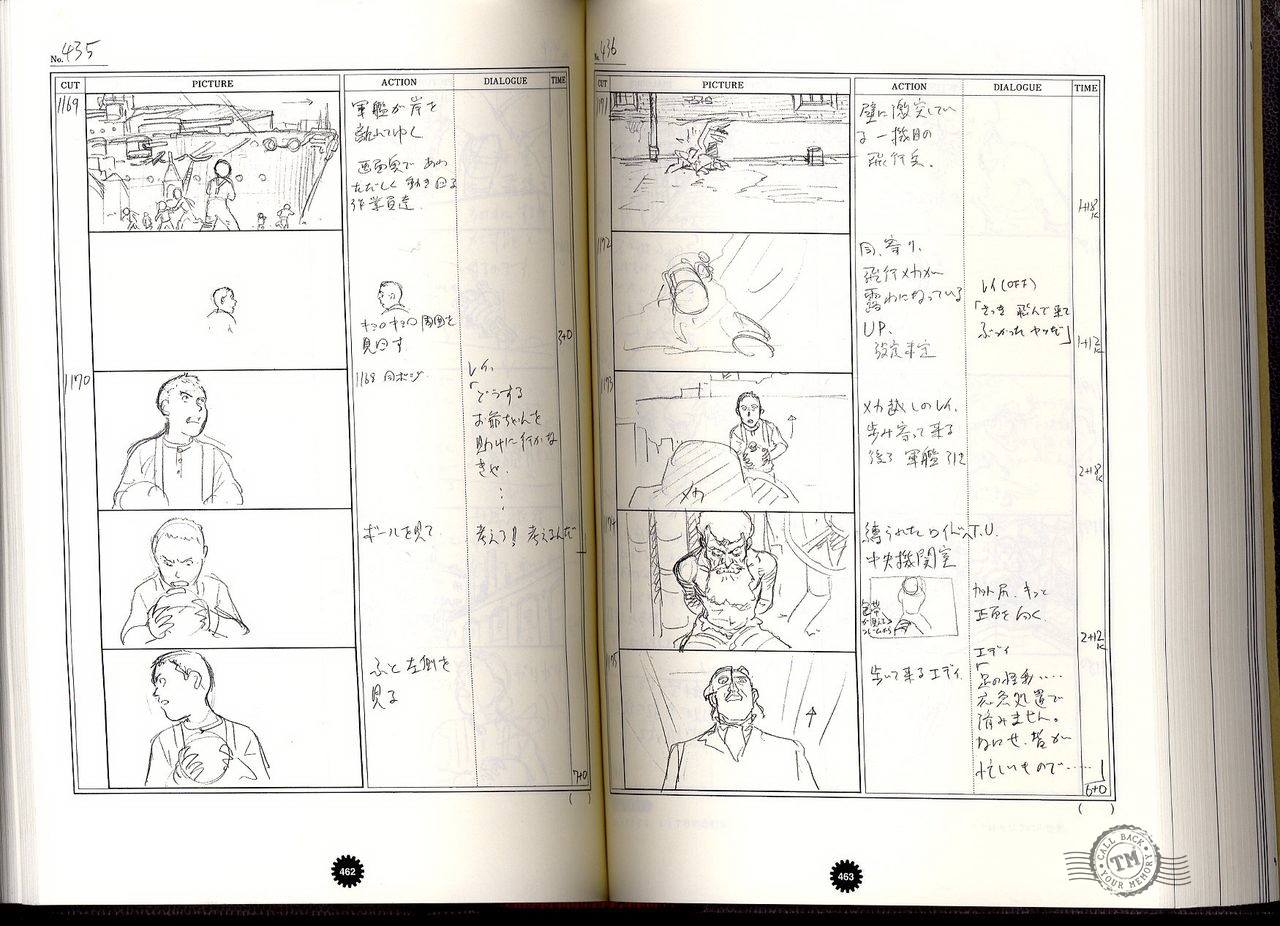 No. 435
CUT PICTURE ACTION DIALOGUE TIME
1169
軍艦が岸を
離れてゆく
画面奥で あわ
ただしく 動き回る
作業員達
キョロキョロ 周囲を
見回す
3+0
1170
1168 同ポジ
レイ
「どうする
お爺ちゃんを
助けに行かな
きゃ
ボールを見て
考えろ! 考えるんだ
ふと 左側を
見る
7+0
( )
462
No. 436
CUT PICTURE ACTION DIALOGUE TIME
1171
壁に激突してい
る 一機目の
飛行兵.
1+18K
1172
同、寄り、
飛行メカが
露わになっている
UP.
設定未定
レイ(OFF)
「さっき 飛んで来て
ぶつかったヤツだ」
1+12K
1173
メカ
メカ越しのレイ.
歩み寄って来る
後ろ 軍艦 引く
2+18K
1174
縛られたロイドへT.U.
中央機関室
包帯
カット尻、キッと
正面を向く
2+12K
1175
歩いて来るエディ.
エディ
「足の怪我‥‥
応急処置で
済みません。
なにせ、皆が
忙しいもので‥‥」
6+0
( )
463
CALL BACK
TM
YOUR MEMORY